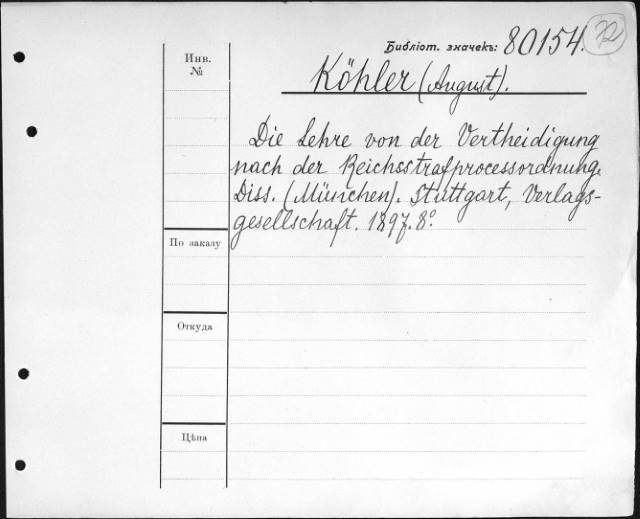 Библіот. значекъ: 80154.
72
Инв.
№
Köhler (August).
Die Lehre von der Vertheidigung
nach der Reichsstrafprocessordnung.
Diss. (München). Stuttgart, Verlags-
gesellschaft. 1897. 8°.
По заказу
Откуда
Цѣна